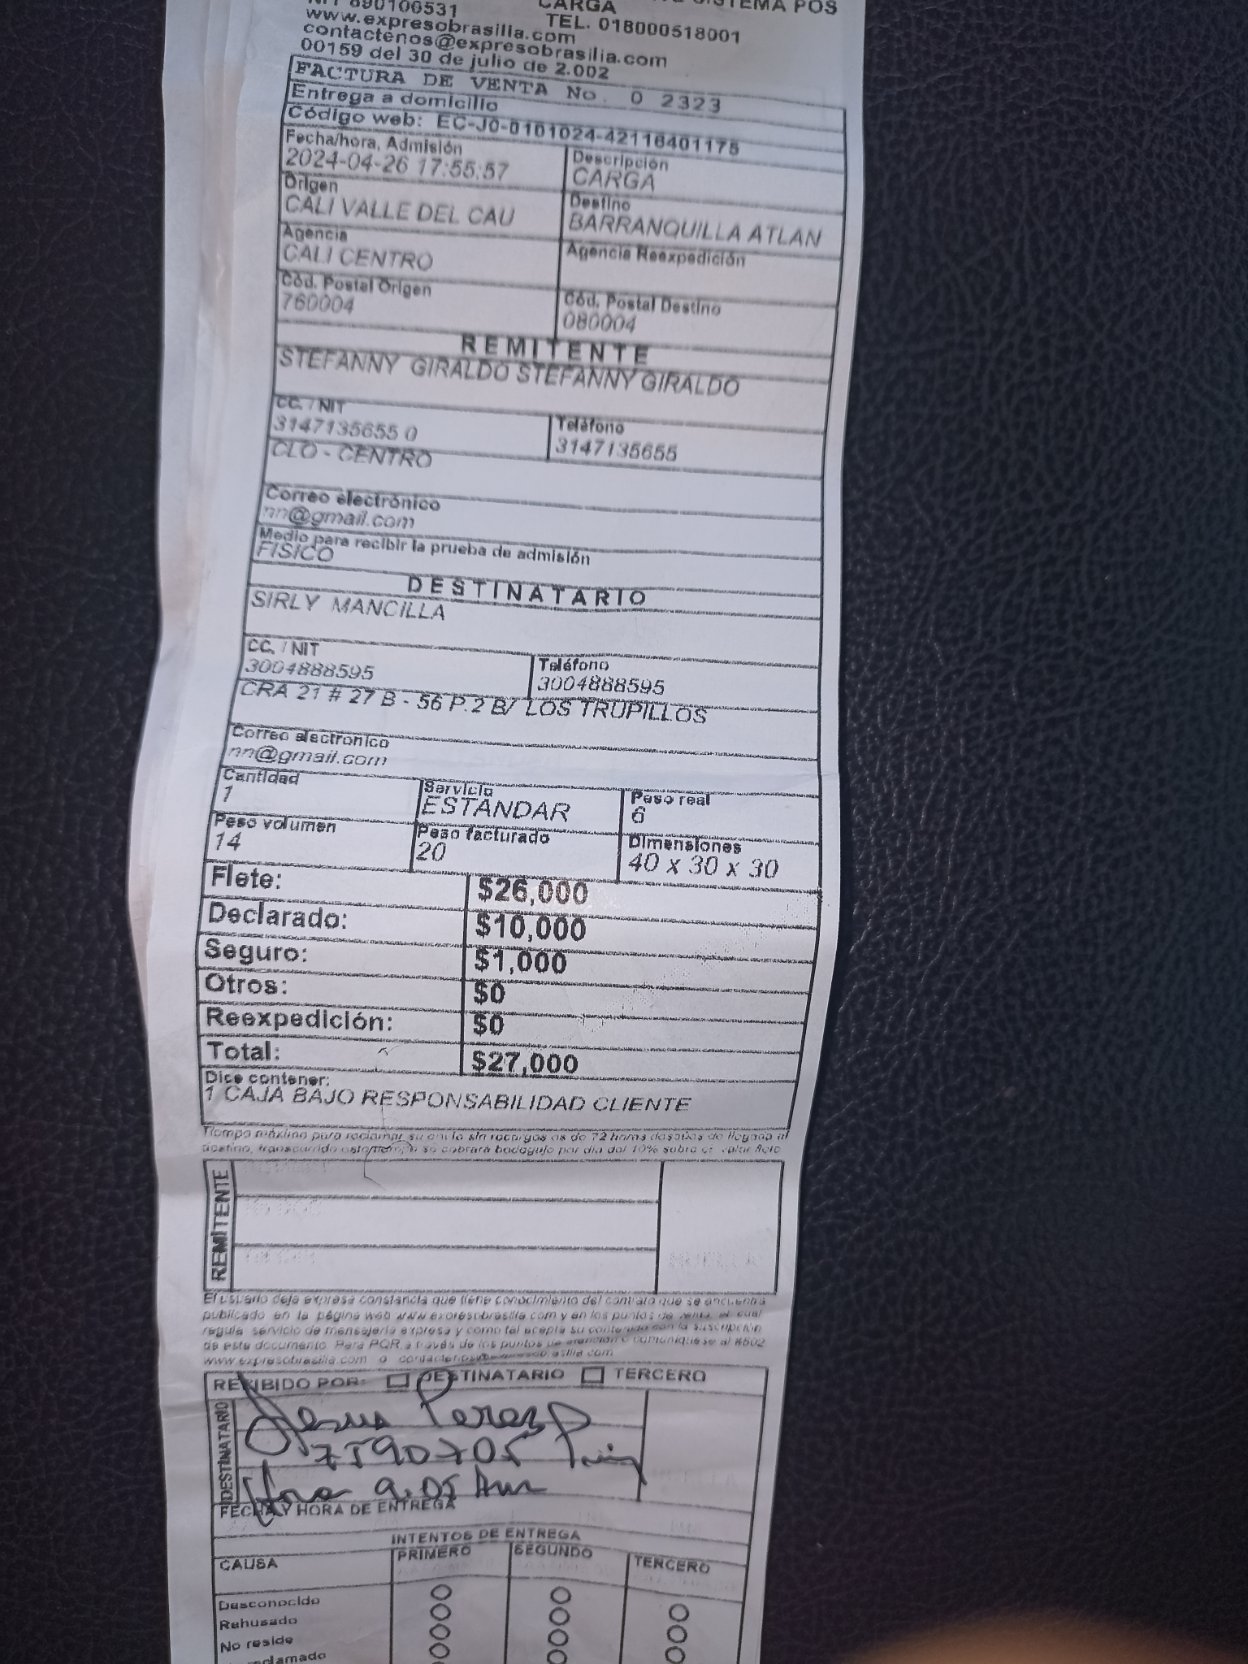 SISTEMA POS
NIT 890100531 CARGA
www.expresobrasilia.com TEL. 018000518001
contactenos@expresobrasilia.com
00159 del 30 de julio de 2.002
FACTURA DE VENTA No. 0 2323
Entrega a domicilio
Código web: EC-J0-0101024-42116401175
Fecha/hora, Admisión Descripción
2024-04-26 17:55:57 CARGA
Origen Destino
CALI VALLE DEL CAU BARRANQUILLA ATLAN
Agencia Agencia Reexpedición
CALI CENTRO
Cód. Postal Origen Cód. Postal Destino
760004 080004
REMITENTE
STEFANNY GIRALDO STEFANNY GIRALDO
CC. / NIT Teléfono
3147135655 0 3147135655
CLO - CENTRO
Correo electrónico
nn@gmail.com
Medio para recibir la prueba de admisión
FISICO
DESTINATARIO
SIRLY MANCILLA
CC. / NIT Teléfono
3004888595 3004888595
CRA 21 # 27 B - 56 P.2 B/ LOS TRUPILLOS
Correo electronico
nn@gmail.com
Cantidad Servicio Peso real
1 ESTANDAR 6
Peso volumen Peso facturado Dimensiones
14 20 40 x 30 x 30
Flete: $26,000
Declarado: $10,000
Seguro: $1,000
Otros: $0
Reexpedición: $0
Total: $27,000
Dice contener:
1 CAJA BAJO RESPONSABILIDAD CLIENTE
Tiempo máximo para reclamar su envío sin recargos es de 72 horas después de llegada al
destino, transcurrido este se cobrará bodegaje por día del 10% sobre el valor flete
REMITENTE
El usuario deja expresa constancia que tiene conocimiento del contrato que se encuentra
publicado en la página web www.expresobrasilia.com y en los puntos de venta, el cual
regula servicio de mensajería expresa y como tal acepta su contenido con la suscripción
de este documento. Para PQR a través de los puntos de atención o comuniquese al #502
www.expresobrasilia.com o
RECIBIDO POR: DESTINATARIO TERCERO
DESTINATARIO
Jesus Perez P
7590705
Hora 9.05 Am
FECHA Y HORA DE ENTREGA
INTENTOS DE ENTREGA
CAUSA PRIMERO SEGUNDO TERCERO
Desconocido
Rehusado
No reside